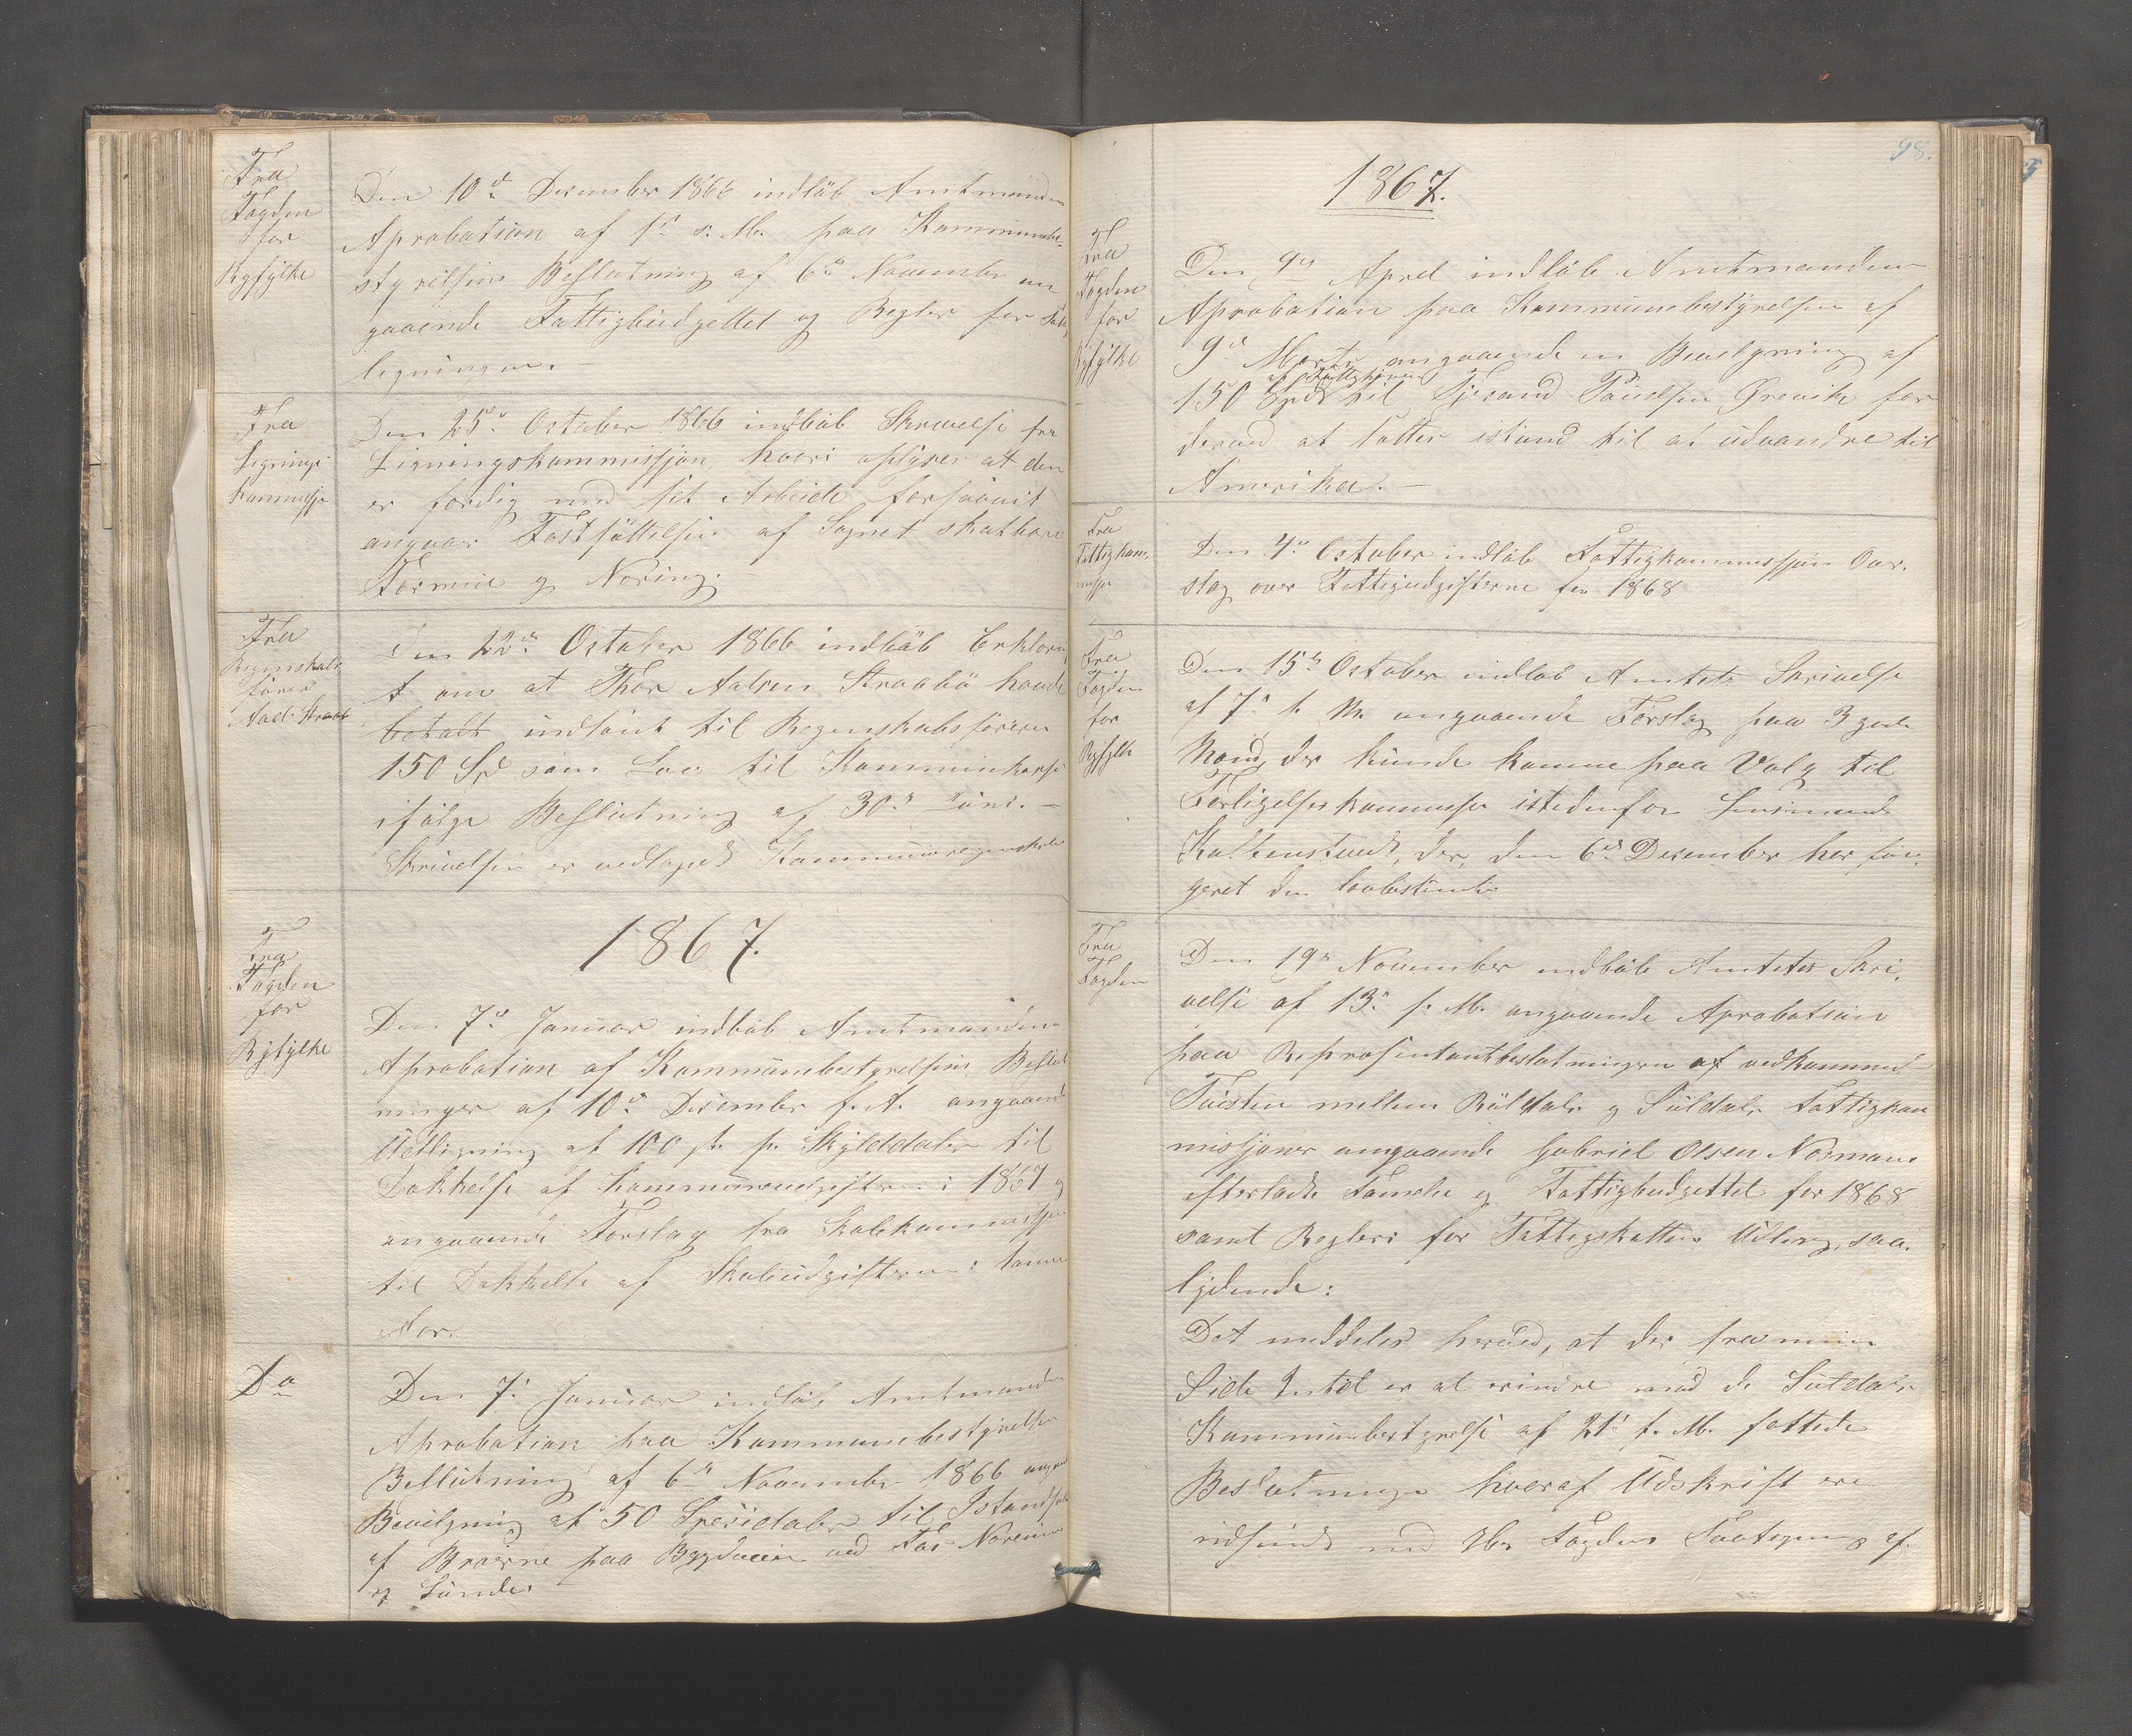 Fra
Fogden
for
Ryfylke
Den 10de Desember 1866 indløb Amtmanden
Aprobation af 1ste s. M. paa Kommunebe-
styrelsens Beslutning af 6te November an
gaaende Fattigbudgettet og Regler for
ligningen.
Fra
Lignings-
kommissjo
Den 25de Octaber 1866 indløb Skrivelse fra
Ligningskommissjon, hvori oplyses att den
er færdig med sit Arbeide forsaavit
angaar Fastsættelsen af Sognet skatbare
Formue og Næring.
Fra
Regnskabs
fører
Aad. Straabø
Den 22de Octaber 1866 indløb Erklæring
t om at Thor Aalsen Straabø havde
betalt indsønt til Regnskabsføreren
150 Spd som Laan til Kommunkasse
ifølge Beslutning af 30de Juni. —
Skrivelsen er vedlagt Kommuneregnskabe
1867.
Fra
Fogden
for
Ryfylke
Den 7de Januar indløb Amtmandens
Aprobation af Kommunebestyrelsens Beslut
ninger af 10de Desember f. A. angaaende
Udligning af 100 s. pr. Skylddaler til
Dækkelse af Kommuneudgifterne i 1867 og
angaaende Forslag fra Skolekommissjon
til Dækkelse af Skoleudgifterne i samme
Aar.
Do
Den 7de Januar indløb Amtmanden
Aprobation paa Kommunebestyrelsen
Beslutning af 6te November 1866 angaa
Bevilgning af 50 Spesidaler til Istandsæt
af Broerne paa Bygdeveien ved Fos Noreim
og Sunde.
98.
1867.
Fra
Fogden
for
Ryfylke
Den 9de April indløb Amtmandens
Aprobation paa Kommunebestyrelsen af
9de Marts angaaende en Bevilgning af
af Fattigkassen
150 Spd til Tjerand Paulsen Grevik for
derved at sættes istand til at udvandre til
Amerika. —
Fra
Fattigkom-
missjo
Den 4de October indløb Fattigkommissjon Over-
slag over Fattigudgifterne for 1868
Fra
Fogden
for
Ryfylke
Den 15de Octaber indløb Amtets Skrivelse
af 7de s. M. angaaende Forslag paa 3 gode
Mænd, der kunde komme paa Valg til
Forligelseskommissjo istedenfor Lensmand
Kolbenstvedt, der den 6te Desember har fun-
geret den lovbestemte
Fra
Fogden
Den 19de November indløb Amtets Skri-
velse af 13de s. M. angaaende Aprobation
paa Repræsentantbeslutningen af vedkommed
Tvisten mellem Røldals og Suldals Fattigkom
missjoner angaaende Gabriel Olsen Normans
efterladte Familie og Fattigbudgettet for 1868
samt Regler for Fattigskattens Udligng, saa-
lydende:
Det meddeles herved, at der fra min
Side Intet er at erindre mod de Suldals
Kommunbestyrelse af 21de f. M. fattede
Beslutninger hvoraf Udskrift ere
indsendt med Hr. Fogdens Paategning af